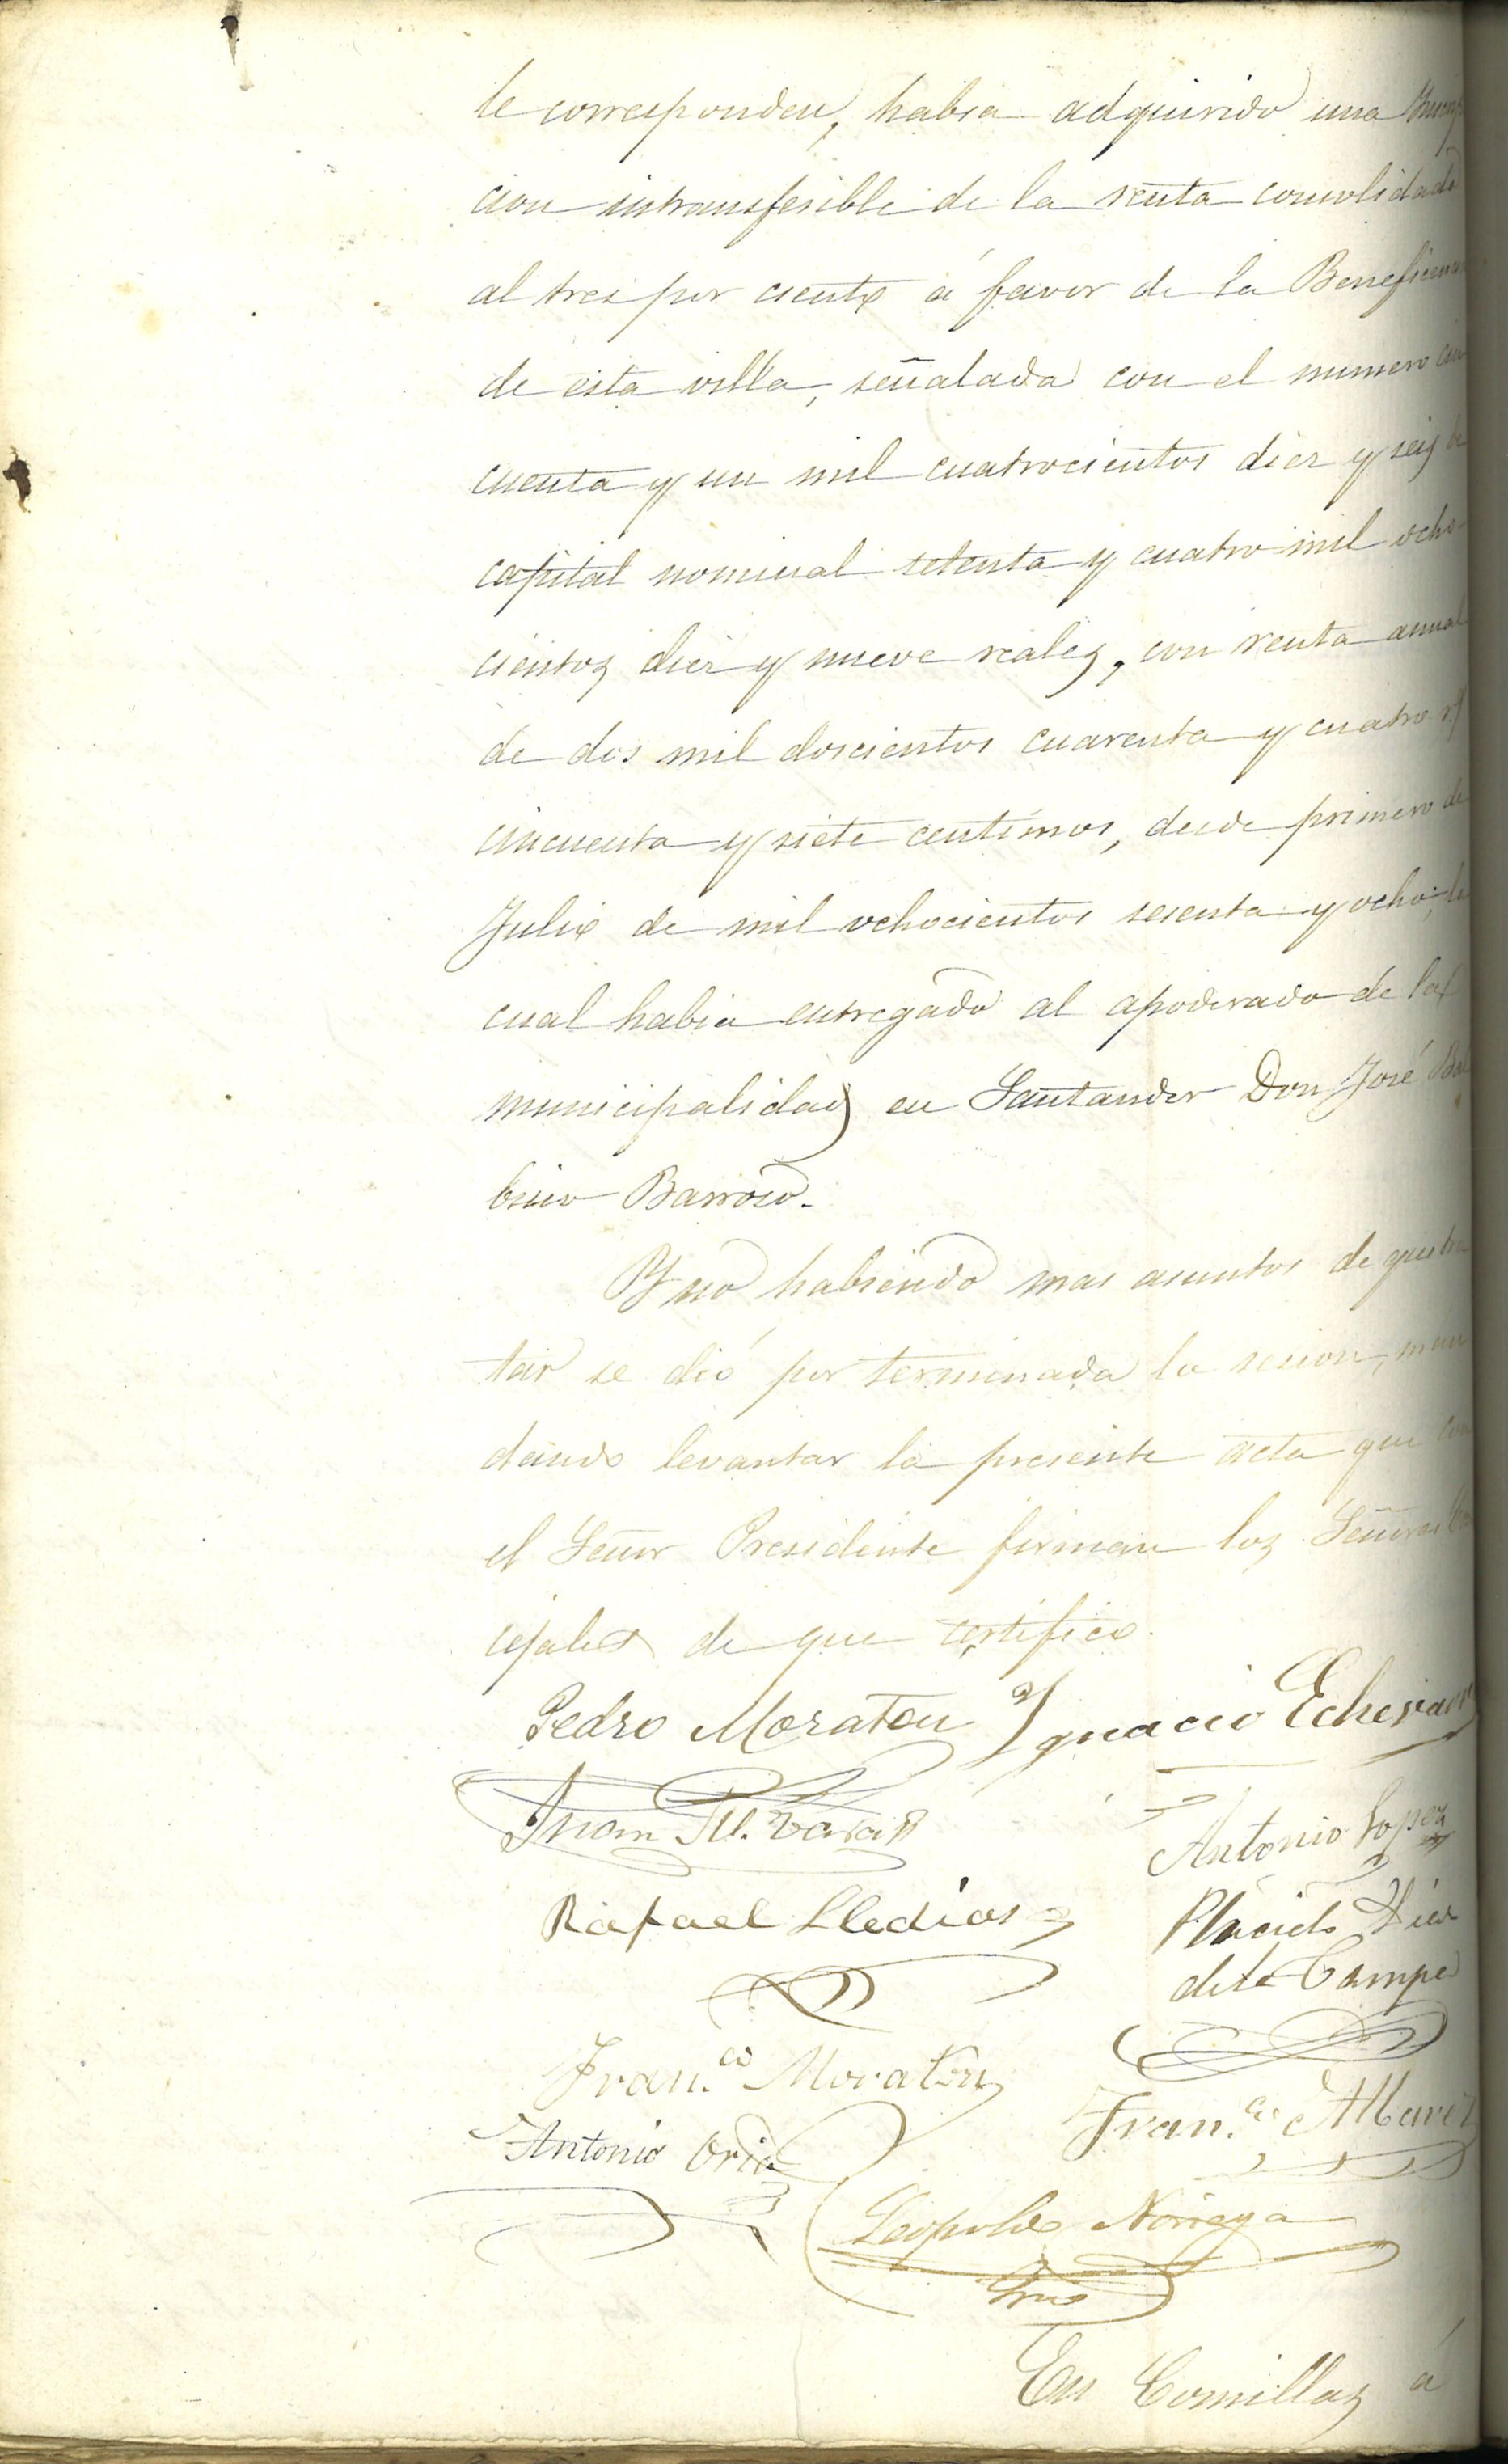 le corresponden, habia adquirido una Inscrip
cion intransferible de la renta consolidada
al tres por ciento á favor de la Beneficencia
de esta villa, señalada con el numero cin
cuenta y un mil cuatrocientos diez y seis de
capital nominal setenta y cuatro mil ocho-
cientos diez y nueve reales, con renta anual
de dos mil doscientos cuarenta y cuatro rs
cincuenta y siete centimos, desde primero de
Julio de mil ochocientos sesenta y ocho, la
cual habia entregado al apoderado de la
municipalidad en Santander Don José Bal
bino Barroso.
Y no habiendo mas asuntos de que tra
tar se dió por terminada la sesion, man
dando levantar la presente acta que con
el Señor Presidente firman los Señores Con
cejales de que certifico.
Pedro Moraton Ygnacio Echevarr
Juan M. Vara
Antonio Lopez
Rafael Lledias
Placido Diaz
de la Campa
Fran.co Moraton
Fran.co Alvarez
Antonio Oria
Leopoldo Noriega
Srio
En Comillas á